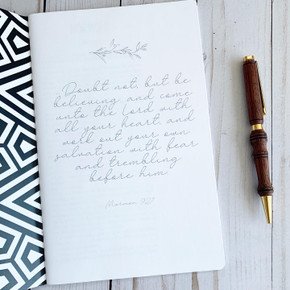 Doubt not, but be
believing and come
unto the Lord with
all your heart, and
work out your own
salvation with fear
and trembling
before him
Mormon 9:27